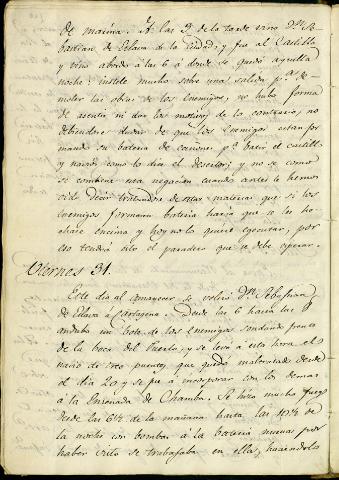 de marina. A las 2 de la tarde vino Dn. Se-
bastian de Eslava de la ciudad, y fue al Castillo
y vino abordo à las 6 á donde se quedó aquella
noche: instele mucho sobre una salida pa. de-
moler las obras de los enemigos, no hubo forma
de asentir ni dar los motivos de lo contrario, no
debiendose dudar de que los Enemigos estan for-
mando su bateria de cañones pa. batir el castillo
y navios como lo dice el desertor; y no se como
se combine esta negacion cuando antes le hemos
oido decir tratandose de estas materias que si los
enemigos formaran bateria haria que se les he-
chase encima y hoy no lo quiere egecutar, por
eso tendrá esto el paradero que se debe esperar.
Viernes 31.
Este dia al amanecer se volvió Dn. Sebastian
de Eslava à Cartagena. Desde las 6 hasta las
anduvo un bote de los Enemigos sondando frente
de la boca del Puerto, y se levó à esta hora el
navio de tres puentes que quedó maltratado desde
el dia 20 y se fue à incorporar con los demas
à la Ensenada de Chamba. Se hizo mucho fuego
desde las 6½ de la mañana hasta las 10½ de
la noche con bombas à la bateria nueva por
haber visto se trabajaba en ella, haciendolo